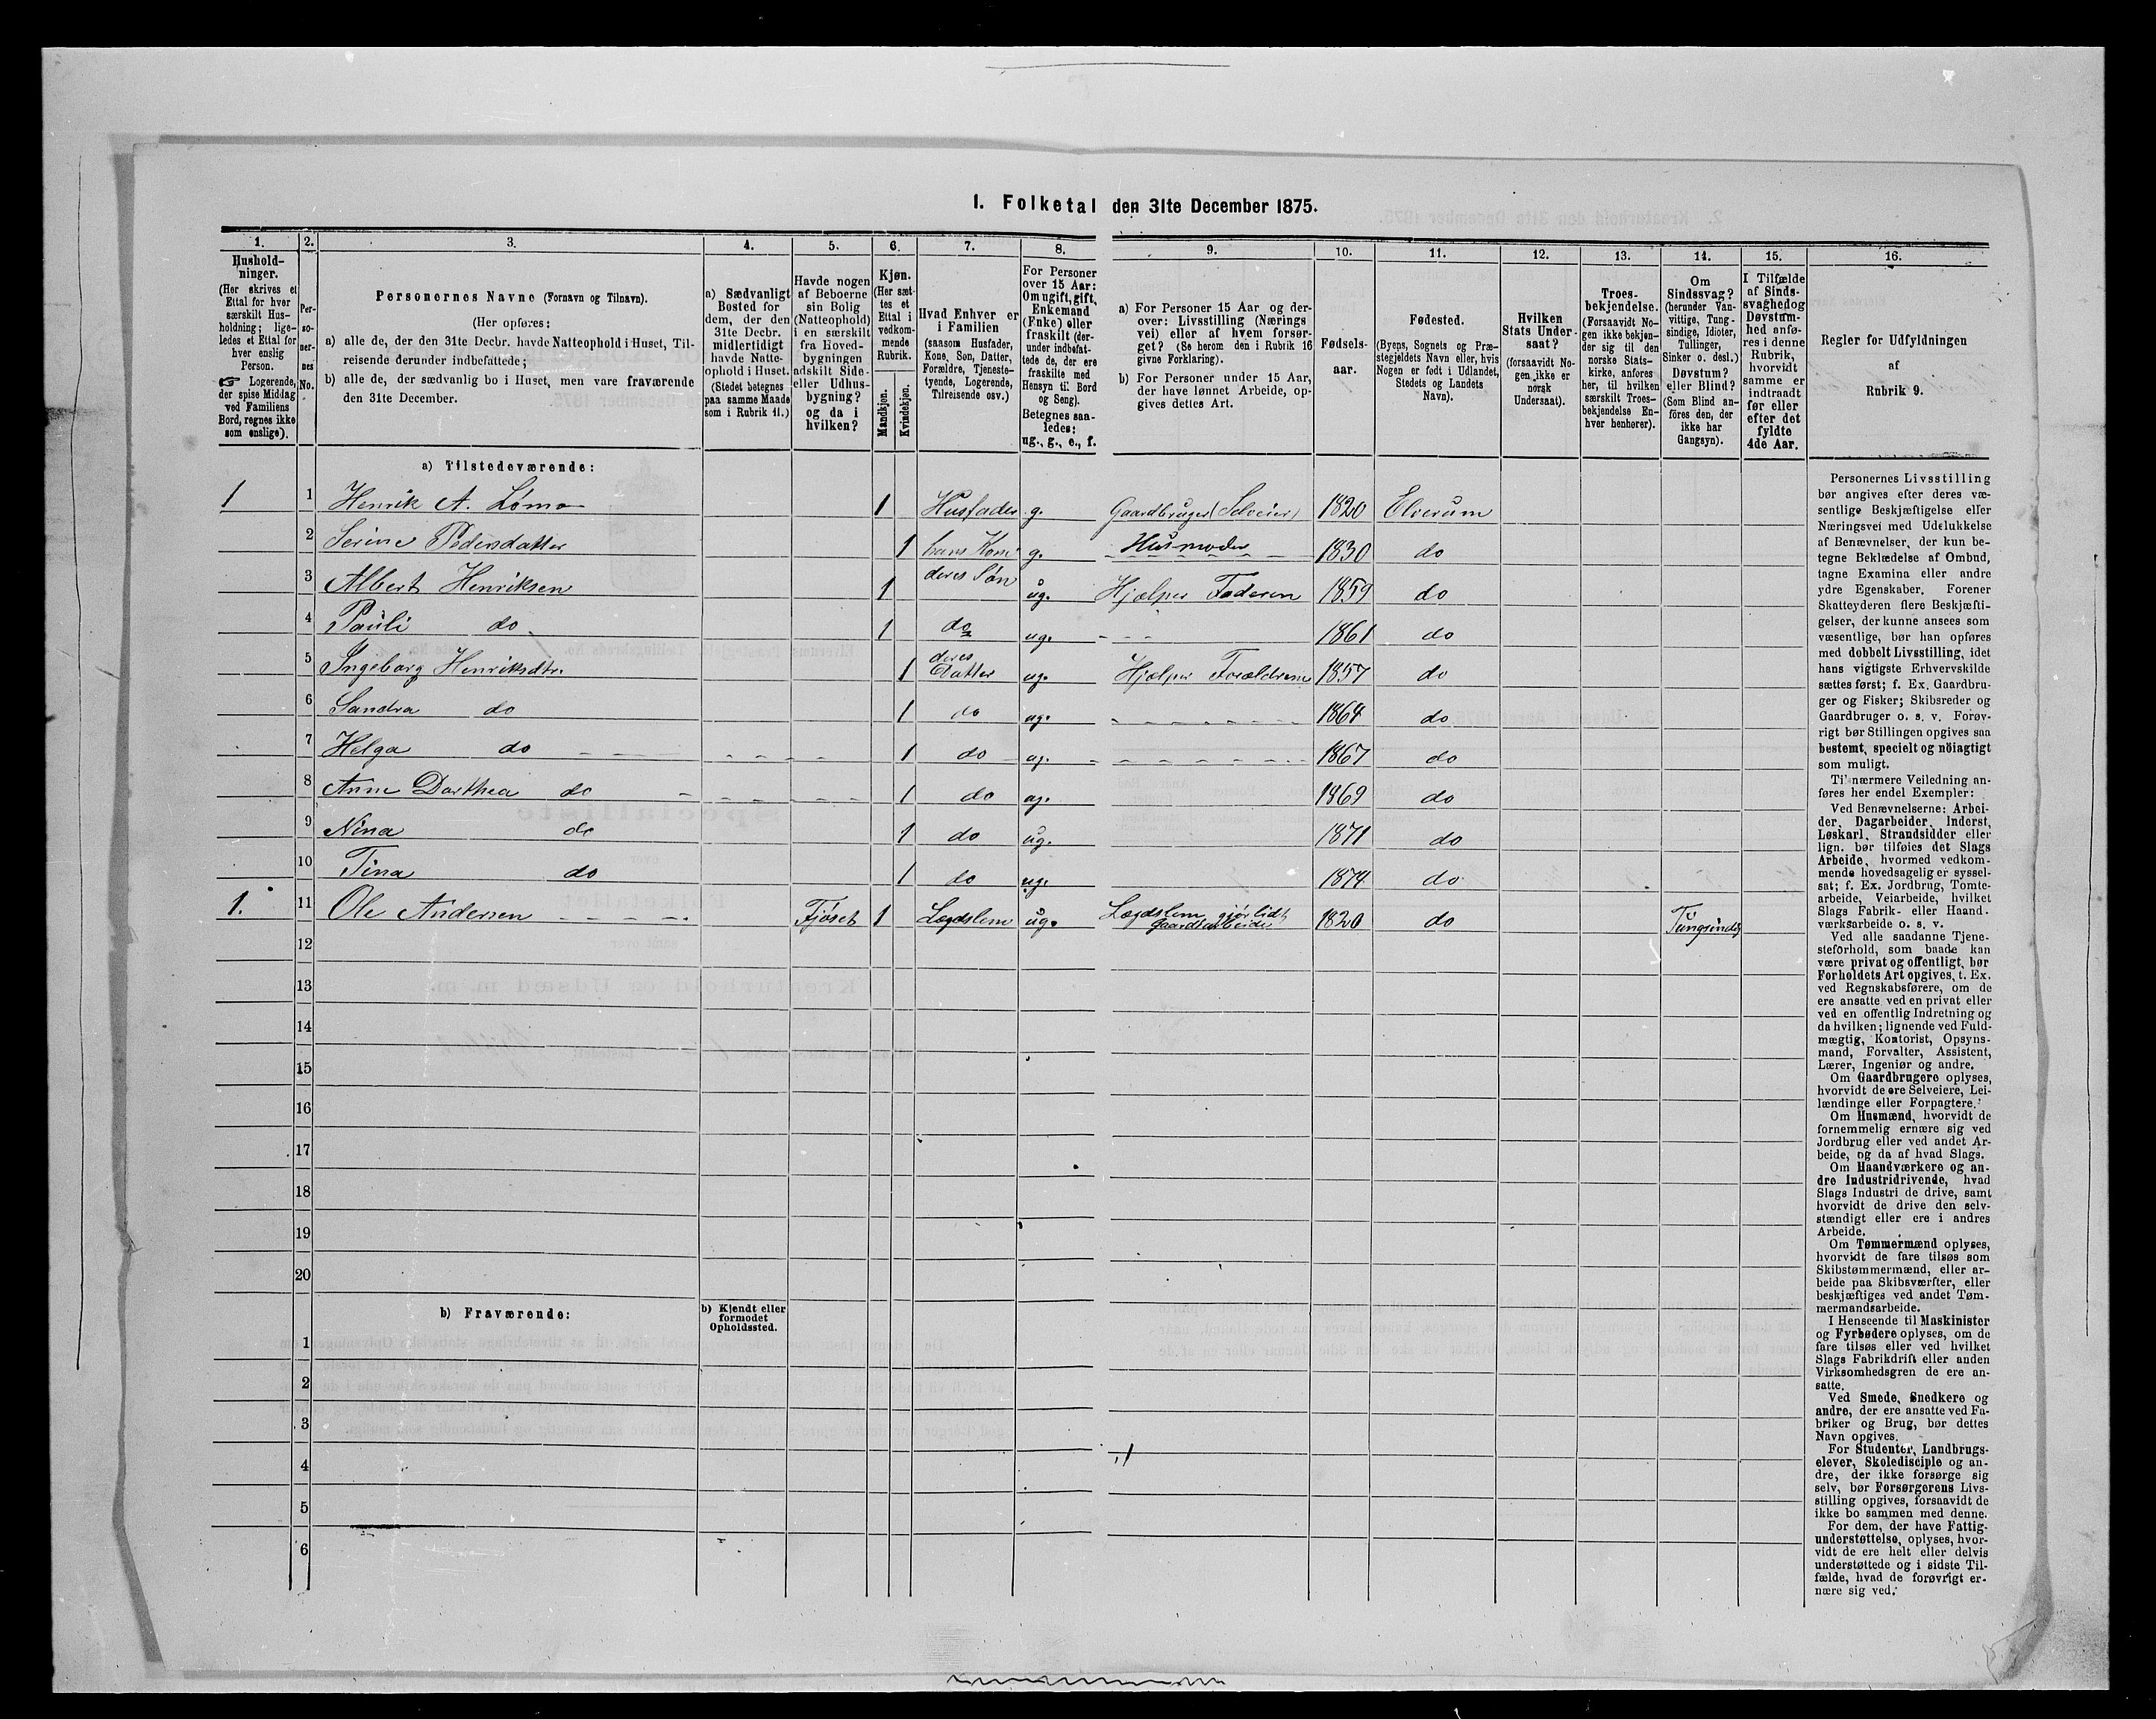 1. Folketal den 31te December 1875.
1.
2.
3.
4.
5.
6.
7.
8.
9.
10.
11.
12.
13.
14.
15.
16.
Hushold-
ninger.
(Her skrives et
Ettal for hver
særskilt Hus-
holdning; lige-
ledes et Ettal for
hver enslig
Person.
☞ Logerende,
der spise Middag
ved Familiens
Bord, regnes ikke
som enslige).
Per-
so-
ner-
nes
No.
Personernes Navne (Fornavn og Tilnavn).
(Her opføres:
a) alle de, der den 31te Decbr. havde Natteophold i Huset, Til-
reisende derunder indbefattede;
b) alle de, der sædvanlig bo i Huset, men vare fraværende
den 31te December.
a) Sædvanligt
Bosted for
dem, der den
31te Decbr.
midlertidigt
havde Natte-
ophold i Huset.
(Stedet betegnes
paa samme Maade
som i Rubrik 11.)
Havde nogen
af Beboerne
sin Bolig
(Natteophold)
i en særskilt
fra Hoved-
bygningen
adskilt Side-
eller Udhus-
bygning?
og da i
hvilken?
Kjøn.
(Her sæt-
tes et
Ettal i
vedkom-
mende
Rubrik.
Mandkjøn.
Kvindekjøn.
Hvad Enhver er
i Familien
(saasom Husfader,
Kone, Søn, Datter,
Forældre, Tjeneste-
tyende, Logerende,
Tilreisende osv.)
For Personer
over 15 Aar:
Om ugift, gift,
Enkemand
(Enke) eller
fraskilt (der-
under indbefat-
tede de, der ere
fraskilte med
Hensyn til Bord
og Seng).
Betegnes saa-
ledes:
ug., g., e., f.
a) For Personer 15 Aar og der-
over: Livsstilling (Nærings
vei) eller af hvem forsør-
get? (Se herom den i Rubrik 16
givne Forklaring).
b) For Personer under 15 Aar,
der have lønnet Arbeide, op-
gives dettes Art.
Fødsels-
aar.
Fødested.
(Byens, Sognets og Præ-
stegjeldets Navn eller, hvis
Nogen er født i Udlandet,
Stedets og Landets
Navn).
Hvilken
Stats Under-
saat?
(forsaavidt No-
gen ikke er
norsk
Undersaat).
Troes-
bekjendelse.
(Forsaavidt No-
gen ikke bekjen-
der sig til den
norske Stats-
kirke, anføres
her, til hvilken
særskilt Troes-
bekjendelse En-
hver henhører).
Om
Sindssvag?
(herunder Van-
vittige, Tung-
sindige, Idioter,
Tullinger,
Sinker o. desl.)
Døvstum?
eller Blind?
(Som Blind an-
føres den, der
ikke har
Gangsyn).
I Tilfælde
af Sinds-
svaghed og
Døvstum-
hed anfø-
res i denne
Rubrik,
hvorvidt
samme er
indtraadt
før eller
efter det
fyldte
4de Aar.
Regler for Udfyldningen
af
Rubrik 9.
a) Tilstedeværende:
1 1 Henrik A. Lømo 1 Husfader g. Gaardbruger (Selveier) 1820 Elverum
2 Serine Pedersdatter 1 hans Kone g. Husmoder 1830 do
3 Albert Henriksen 1 deres Søn ug. Hjælper Faderen 1859 do
4 Pauli do 1 do ug. - - - 1861 do
5 Ingeborg Henriksdtr. 1 deres Datter ug. Hjælper Forældrene 1857 do
6 Sandra do 1 do ug. 1864 do
7 Helga do 1 do ug. 1867 do
8 Anne Dorthea do 1 do ug. 1869 do
9 Nina do 1 do ug. 1871 do
10 Tina do 1 do ug. 1874 do
1. 11 Ole Andersen Fjøset 1 Lægdslem ug. Lægdslem gjør lidt Gaardsarbeide 1820 do Tungsindig
12
13
14
15
16
17
18
19
20
b) Fraværende:
b) Kjendt eller
formodet
Opholdssted.
1
2
3
4
5
6
Personernes Livsstilling
bør angives efter deres væ-
sentlige Beskjæftigelse eller
Næringsvei med Udelukkelse
af Benævnelser, der kun be-
tegne Beklædelse af Ombud,
tagne Examina eller andre
ydre Egenskaber. Forener
Skatteyderen flere Beskjæfti-
gelser, der kunne ansees som
væsentlige, bør han opføres
med dobbelt Livsstilling, idet
hans vigtigste Erhvervskilde
sættes først; f. Ex. Gaardbru-
ger og Fisker; Skibsreder og
Gaardbruger o. s. v. Forøv-
rigt bør Stillingen opgives saa
bestemt, specielt og nöiagtigt
som muligt.
Til nærmere Veiledning an-
føres her endel Exempler:
Ved Benævnelserne: Arbei-
der, Dagarbeider, Inderst,
Løskarl, Strandsidder eller
lign. bør tilføies det Slags
Arbeide, hvormed vedkom-
mende hovedsagelig er syssel-
sat; f. Ex. Jordbrug, Tomte-
arbeide, Veiarbeide, hvilket
Slags Fabrik- eller Haand-
værksarbeide o. s. v.
Ved alle saadanne Tjene-
steforhold, som baade kan
være privat og offentligt, bør
Forholdets Art opgives, t. Ex.
ved Regnskabsførere, om de
ere ansatte ved en privat eller
ved en offentlig Indretning og
da hvilken; lignende ved Fuld-
mægtig, Kontorist, Opsyns-
mand, Forvalter, Assistent,
Lærer, Ingeniør og andre.
Om Gaardbrugere oplyses,
hvorvidt de ere Selveiere, Lei-
lændinge eller Forpagtere.
Om Husmænd, hvorvidt de
fornemmelig ernære sig ved
Jordbrug eller ved andet Ar-
beide, og da af hvad Slags.
Om Haandværkere og an-
dre Industridrivende, hvad
Slags Industri de drive, samt
hvorvidt de drive den selv-
stændigt eller ere i andres
Arbeide.
Om Tømmermænd oplyses,
hvorvidt de fare tilsøs som
Skibstømmermænd, eller ar-
beide paa Skibsværfter, eller
beskjæftiges ved andet Tøm-
mermandsarbeide.
I Henseende til Maskinister
og Fyrbødere oplyses, om de
fare tilsøs eller ved hvilket
Slags Fabrikdrift eller anden
Virksomhedsgren de ere an-
satte.
Ved Smede, Snedkere og
andre, der ere ansatte ved Fa-
briker og Brug, bør dettes
Navn opgives.
For Studenter, Landbrugs-
elever, Skoledisciple og an-
dre, der ikke forsørge sig
selv, bør Forsørgerens Livs-
stilling opgives, forsaavidt de
ikke bo sammen med denne.
For dem, der have Fattig-
understøttelse, oplyses, hvor-
vidt de ere helt eller delvis
understøttede og i sidste Til-
fælde, hvad de forøvrigt er-
nære sig ved.